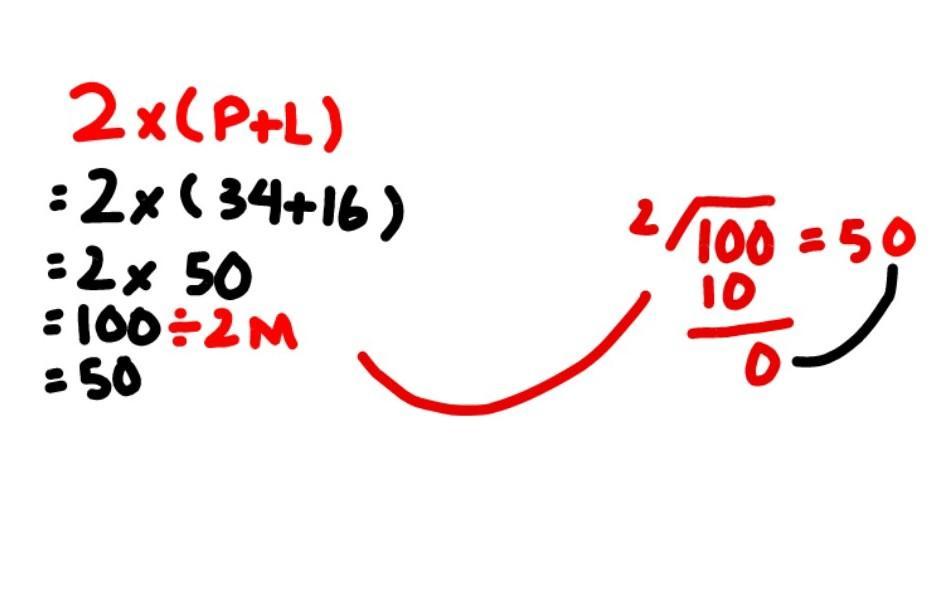 2x(P+L)
=2x(34+16)
=2x 50
=100÷2M
=50
2√100=50
10
0